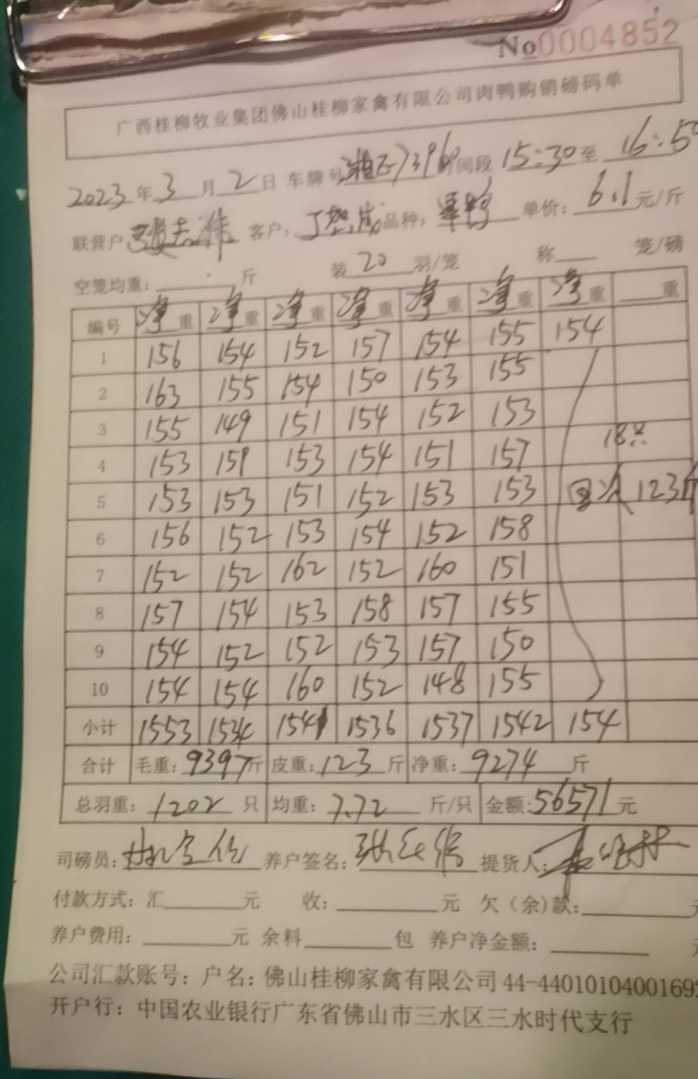 No0004852
广西桂柳牧业集团佛山桂柳家禽有限公司肉鸭购销磅码单
2023年3月2日 车牌号 时间段 15:30至16:50
联营户 客户: 品种: 单价: 6.1元/斤
空笼均重: 斤 装20羽/笼 称 笼/磅
编号 净重 净重 净重 净重 净重 净重 净重 重
1 156 154 152 157 154 155 154
2 163 155 154 150 153 155
3 155 149 151 154 152 153
4 153 159 153 154 151 157 18只
5 153 153 151 152 153 153 123斤
6 156 152 153 154 152 158
7 152 152 162 152 160 151
8 157 154 153 158 157 155
9 154 152 152 153 157 150
10 154 154 160 152 148 155
小计 1553 1534 1541 1536 1537 1542 154
合计 毛重: 9397斤 皮重: 123斤 净重: 9274斤
总羽重: 1202只 均重: 7.72斤/只 金额: 56571元
司磅员: 养户签名: 提货人:
付款方式: 汇 元 收: 元 欠(余)款: 元
养户费用: 元 余料 包 养户净金额:
公司汇款账号: 户名: 佛山桂柳家禽有限公司 44-4401010400169
开户行: 中国农业银行广东省佛山市三水区三水时代支行